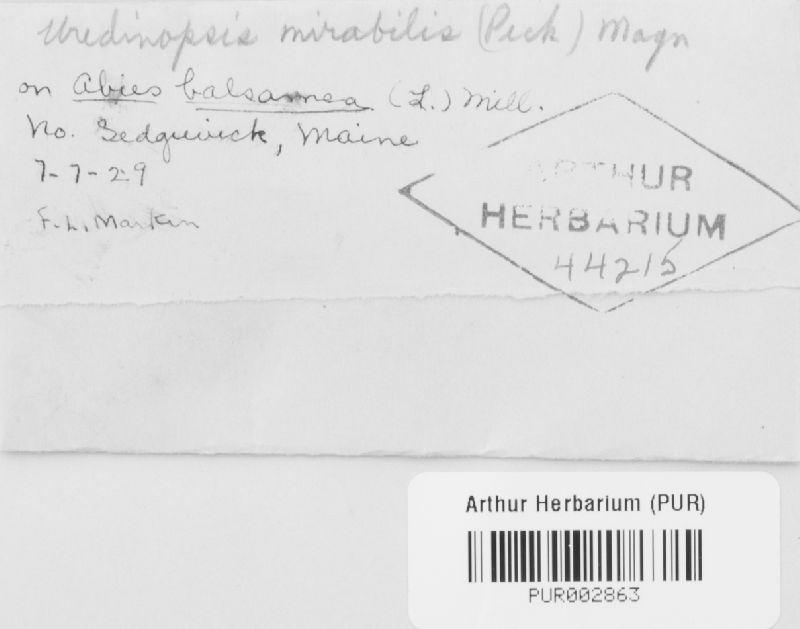 Uredinopsis mirabilis (Peck) Magn
on Abies balsamea (L.) Mill.
No. Sedgwick, Maine
7-7-29
F. L.
ARTHUR
HERBARIUM
44215
Arthur Herbarium (PUR)
PUR002863